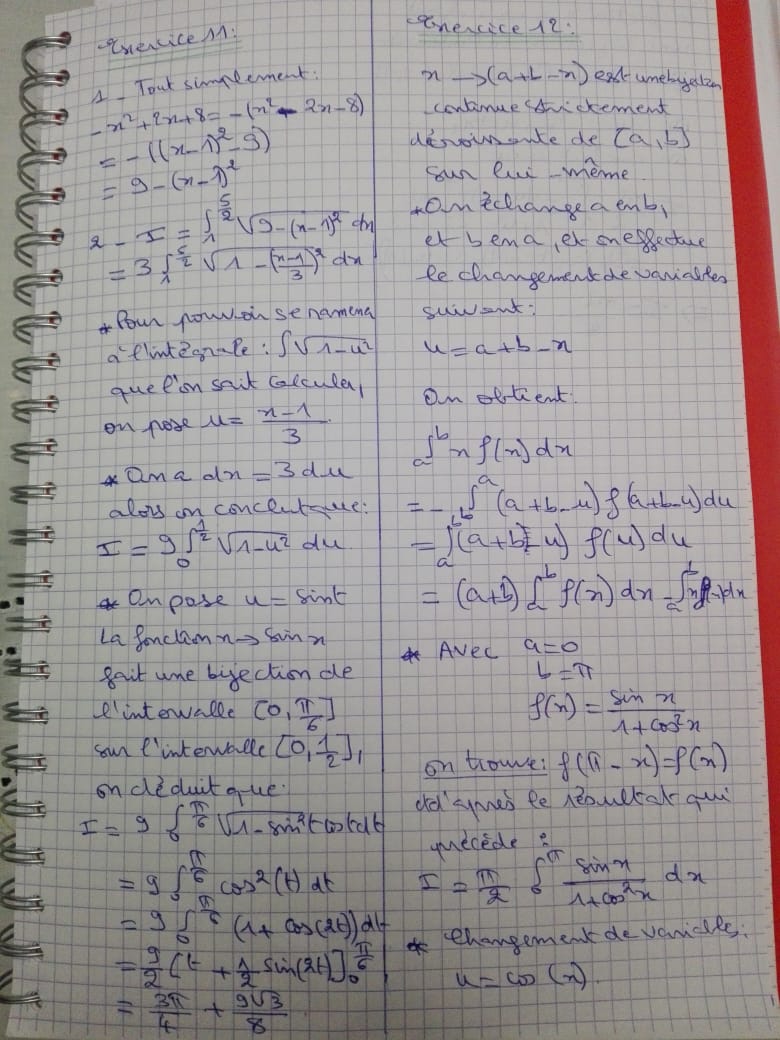 Exercice 11:
1 - Tout simplement:
-x²+2x+8 = -(x² - 2x-8)
= -((x-1)²-9)
= 9-(x-1)²
2 - I = ∫₁^{5/2} √(9-(x-1)²) dx
= 3 ∫₁^{5/2} √(1-((x-1)/3)²) dx
* Pour pouvoir se ramener
à l'intégrale: ∫√(1-u²)
que l'on sait calculer,
on pose u = (x-1)/3
* On a dx = 3 du
alors on conclut que:
I = 9 ∫₀^{1/2} √(1-u²) du
* On pose u = sint
La fonction x→sin x
fait une bijection de
l'intervalle [0, π/6]
sur l'intervalle [0, 1/2],
on déduit que:
I = 9 ∫₀^{π/6} √(1-sin²t) cost dt
= 9 ∫₀^{π/6} cos²(t) dt
= 9 ∫₀^{π/6} (1+ cos(2t)) dt
= 9/2 [t + 1/2 sin(2t)]₀^{π/6}
= 3π/4 + 9√3/8
Exercice 12:
x →(a+b-x) est une bijection
continue strictement
décroissante de [a,b]
sur lui-même.
* On échange a en b,
et b en a, et on effectue
le changement de variables
suivant:
u = a+b-x
On obtient:
∫ₐᵇ x f(x) dx
= - ∫_b^a (a+b-u) f(a+b-u) du
= ∫ₐᵇ (a+b-u) f(u) du
= (a+b) ∫ₐᵇ f(x) dx - ∫ₐᵇ x f(x) dx
* Avec a=0
b=π
f(x) = sin x/(1+cos²x)
on trouve: f(π-x)=f(x)
et d'après le résultat qui
précède:
I = π/2 ∫₀^π sin x/(1+cos²x) dx
* Changement de variables:
u = cos (x).